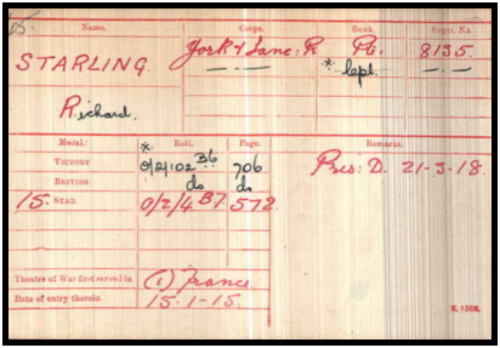 Name. Corps. Rank. Regtl. No.
STARLING. York & Lanc: R Pte. 8135.
—.— * Cpl. —.—
Richard.
Medal. Roll. Page. Remarks.
VICTORY * O/2/102 B6 706 Pres: D. 21-3-18.
BRITISH do do
15 STAR O/2/4 B7. 572
Theatre of War first served in (1) France
Date of entry therein 15-1-15.
K. 1380.